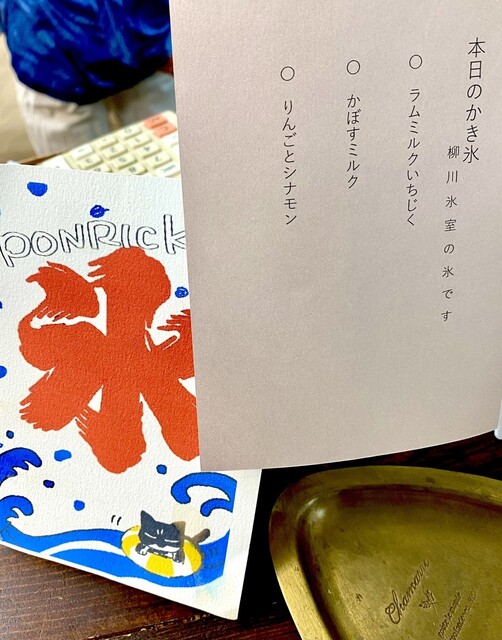 本日のかき氷
柳川氷室の氷です
○ ラムミルクいちじく
○ かぼすミルク
○ りんごとシナモン
PONRICK
氷
Chamaru